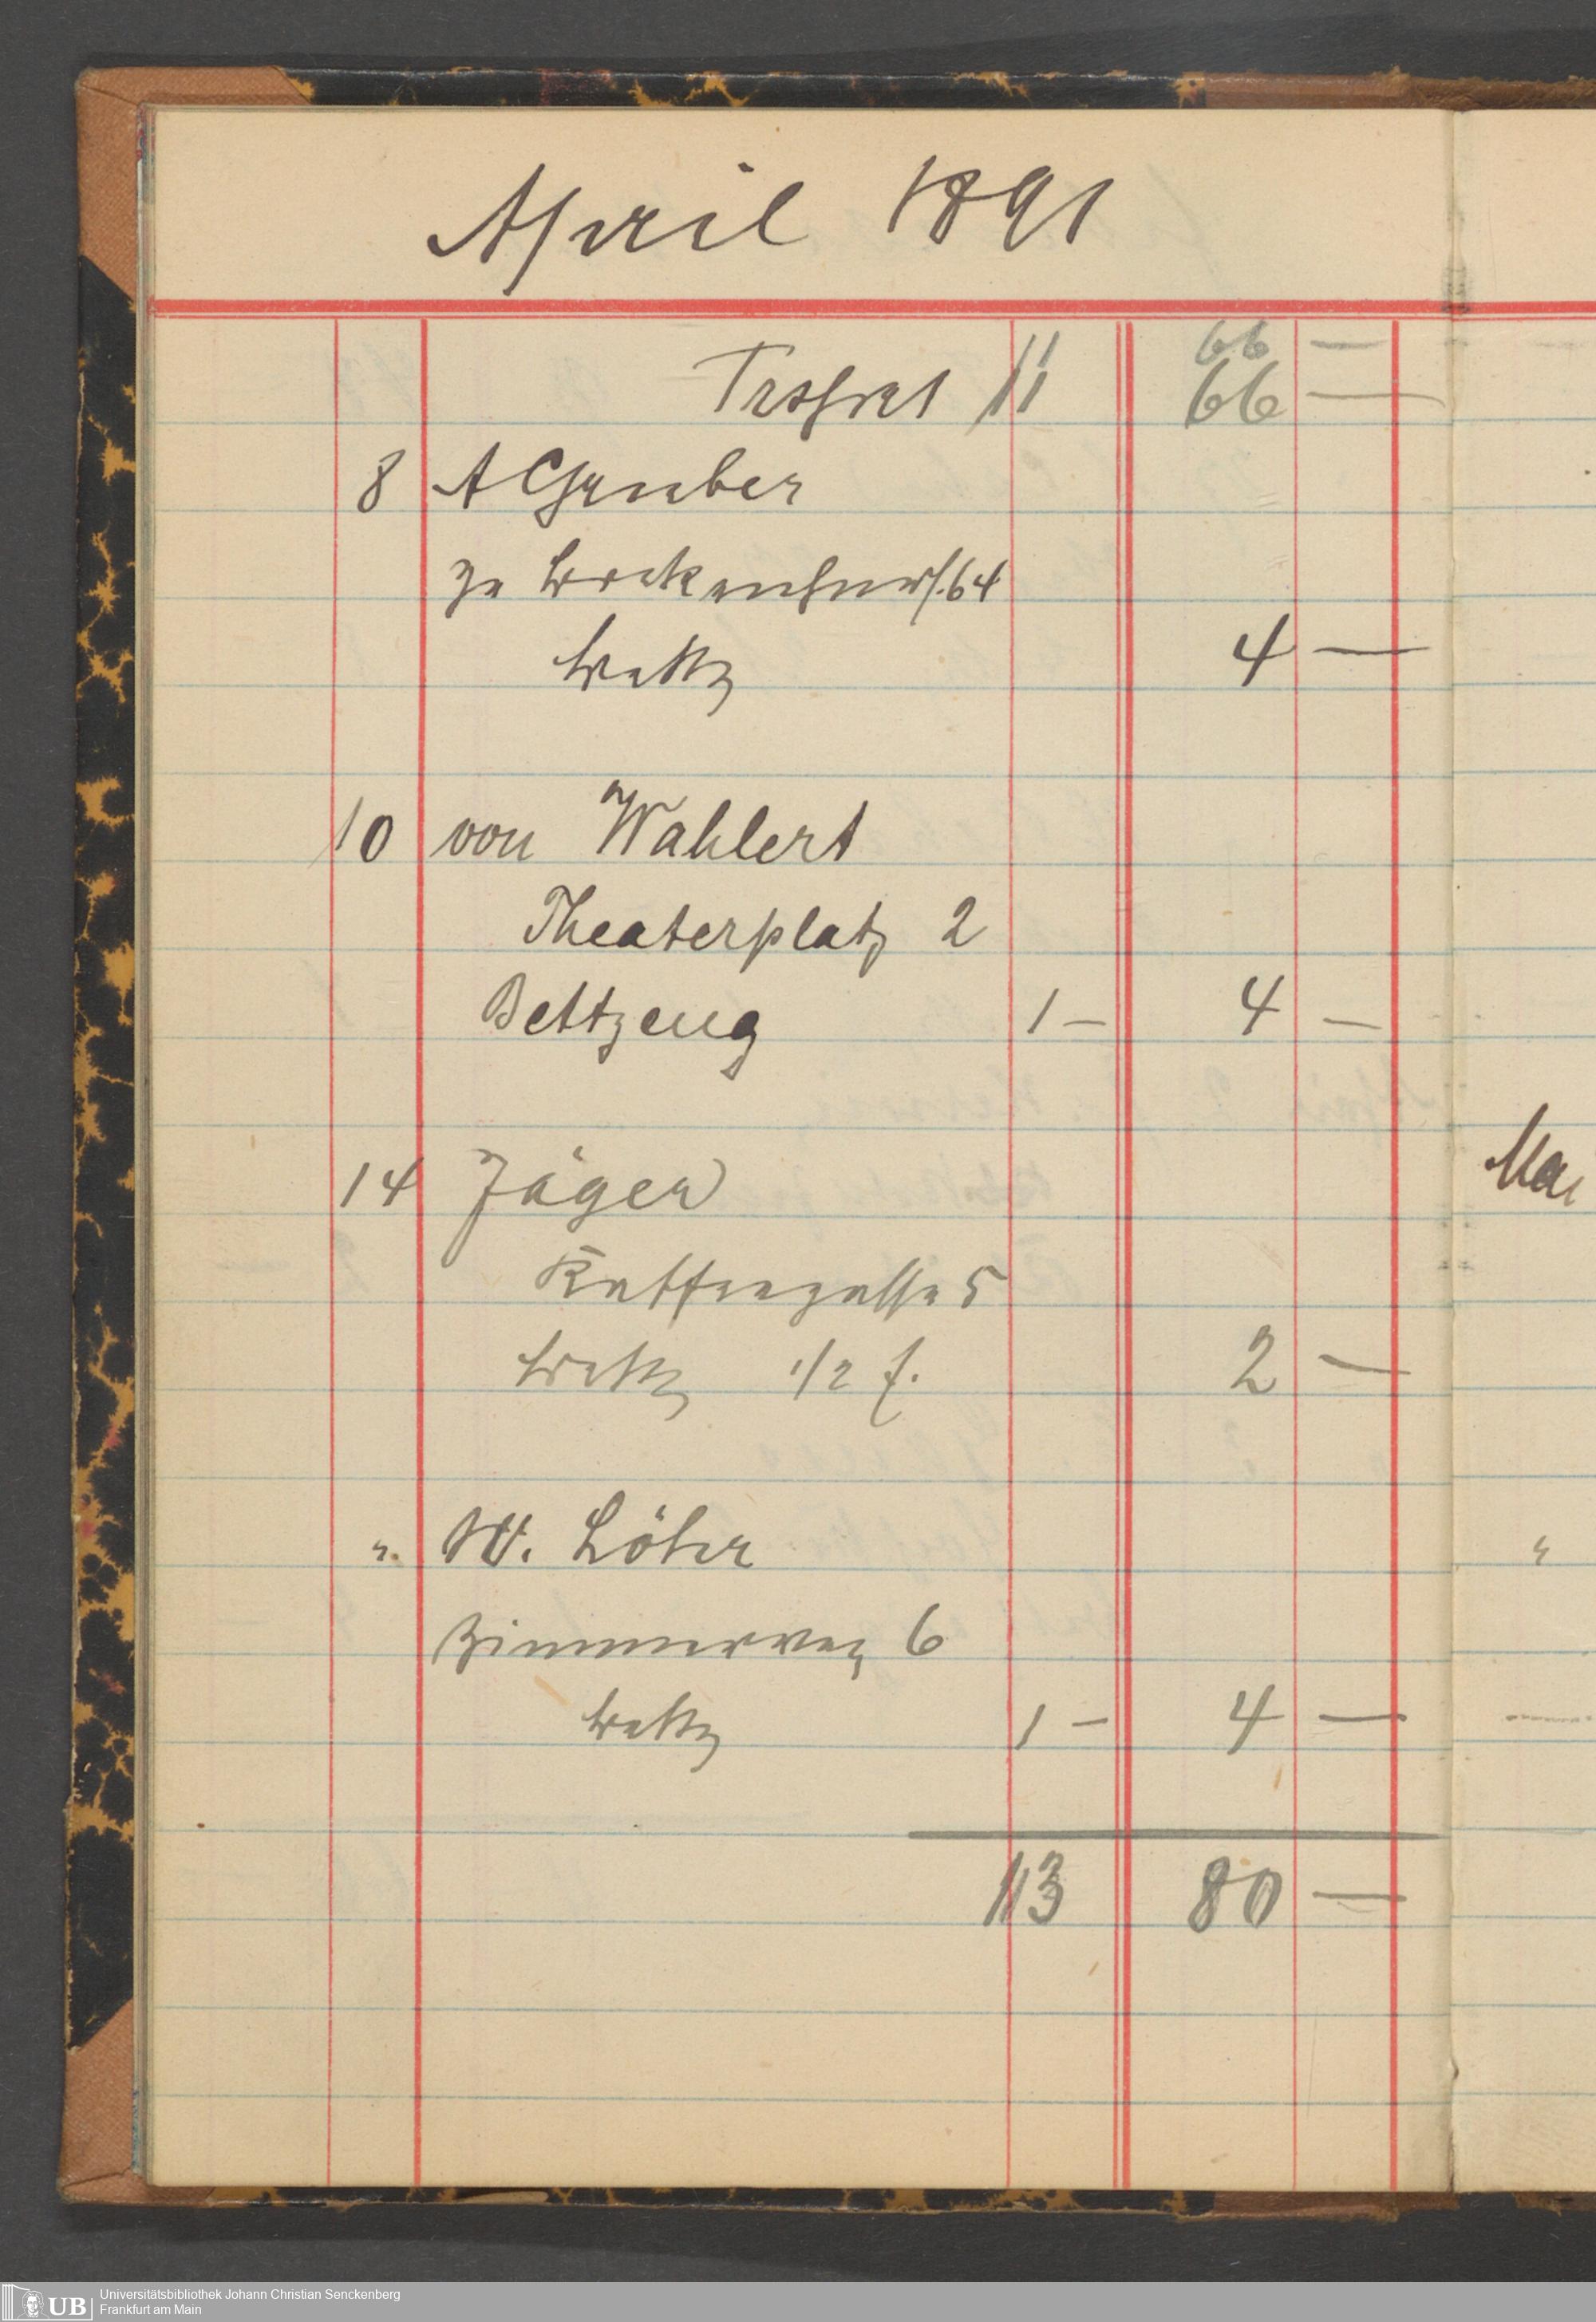 April 1891
66 —
Trsprt 11 66 —
8 A Gruber
gr Bockenhmrlf. 64
Bettz 4 —
10 von Wahlert
Theaterplatz 2
Bettzeug 1 — 4 —
14 Jäger
Mai
5
Bettz 1/2 f. 2 —
" W. Löhr
"
Zimmerweg 6
Bettz 1 — 4 —
13 80 —
UB Universitätsbibliothek Johann Christian Senckenberg
Frankfurt am Main